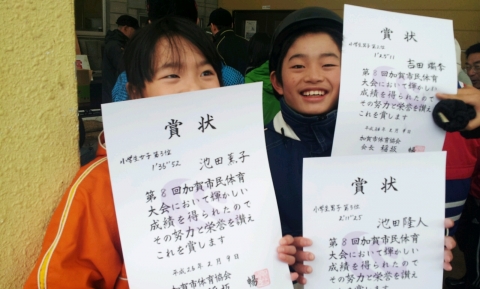 賞状
小学生女子 第3位
1'35"52
池田 薫子
第8回加賀市民体育
大会において輝かしい
成績を得られたので
その努力と栄誉を讃え
これを賞します
平成26年2月9日
加賀市体育協会
暢
賞状
吉田
第8回加賀市民体育
大会において輝かしい
成績を得られたので
その努力と栄誉を讃え
これを賞します
平成26年2月9日
加賀市体育協会
会長 稲坂 暢
賞状
小学生男子 第3位
池田 隆人
第8回加賀市民体育
大会において輝かしい
成績を得られたので
その努力と栄誉を讃え
これを賞します
平成26年2月9日
加賀市体育協会